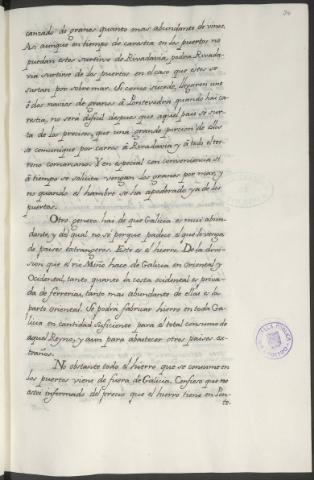 34
canzado de granos quanto mas abundante de vinos.
Asi aunque en tiempo de carestia en los puertos no
puedan estos surtirse de Rivadavia, podra Rivada-
via surtirse de los puertos en el caso que estos se
surtan por sobre mar. Si como sucede, llegaren uno
ô dos navios de granos â Pontevedra quando hai ca-
restia, no será dificil despues que aquel pais se sur-
ta de los precisos, que una grande porcion de ellos
se comunique por carros â Rivadavia y â todo el ter-
reno comarcano. Y en especial con conveniencia si
â tiempo se solicita vengan los granos por mar, y
no quando el hambre se ha apoderado ya de los
puertos.
Otro genero hai de que Galicia es mui abun-
dante, y del qual no sé porque padece el que le venga
de paises extrangeros. Este es el hierro. De la divi-
sion que el rio Miño hace de Galicia en Oriental y
Occidental, tanto quanto la costa occidental es priva-
da de ferrerias, tanto mas abundante de ellas es la
parte oriental. Se podra fabricar hierro en toda Ga-
licia en cantidad suficiente para el total consumo de
aquel Reyno, y aun para abastecer otros paises ex-
traños.
No obstante todo el hierro que se consume en
los puertos viene de fuera de Galicia. Confieso que no
estoi informado del precio que el hierro tiene en Pon-
te-